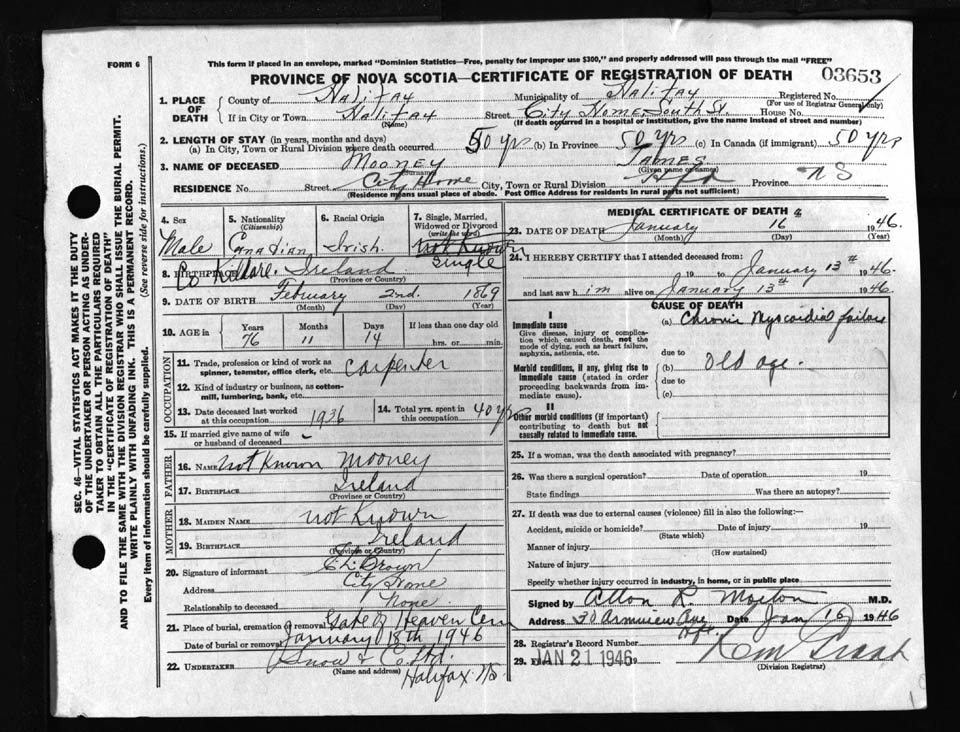 FORM 6
This form if placed in an envelope, marked "Dominion Statistics—Free, penalty for improper use $300," and properly addressed will pass through the mail "FREE"
PROVINCE OF NOVA SCOTIA—CERTIFICATE OF REGISTRATION OF DEATH
03653
1. PLACE OF DEATH
County of Halifax Municipality of Halifax Registered No.
(For use of Registrar General only)
If in City or Town Halifax Street City Home, South St. House No.
(Name) (If death occurred in a hospital or institution, give the name instead of street and number)
2. LENGTH OF STAY (in years, months and days)
(a) In City, Town or Rural Division where death occurred 50 yrs (b) In Province 50 yrs (c) In Canada (if immigrant) 50 yrs
3. NAME OF DECEASED Mooney James
(Surname) (Given name or names)
RESIDENCE No. Street City Home City, Town or Rural Division Hfx Province N S
(Residence means usual place of abode. Post Office Address for residents in rural parts not sufficient)
4. Sex
Male
5. Nationality
(Citizenship)
Canadian
6. Racial Origin
Irish.
7. Single, Married, Widowed or Divorced
(write the word)
Not Known
Single
8. BIRTHPLACE Co Kildare. Ireland
(Province or Country)
9. DATE OF BIRTH February 2nd. 1869
(Month) (Day) (Year)
10. AGE in
Years Months Days If less than one day old
76 11 14 hrs. or min.
OCCUPATION
11. Trade, profession or kind of work as spinner, teamster, office clerk, etc. Carpenter
12. Kind of industry or business, as cotton-mill, lumbering, bank, etc.
13. Date deceased last worked at this occupation 1936
14. Total yrs. spent in this occupation 40 yrs
15. If married give name of wife or husband of deceased -
FATHER
16. NAME Not Known Mooney
17. BIRTHPLACE Ireland
(Province or Country)
MOTHER
18. MAIDEN NAME Not Known
19. BIRTHPLACE Ireland
(Province or Country)
20. Signature of informant Brown
Address City Home
Relationship to deceased None
21. Place of burial, cremation or removal Gate of Heaven Cem
Date of burial or removal January 18th 1946
22. UNDERTAKER Snow & Co. Ltd.
(Name and address)
Halifax N.S
MEDICAL CERTIFICATE OF DEATH
23. DATE OF DEATH January 16 1946.
(Month) (Day)
24. I HEREBY CERTIFY that I attended deceased from:
19 to January 13th 1946.
and last saw him alive on January 13th 1946.
CAUSE OF DEATH
I
Immediate cause
Give disease, injury or complication which caused death, not the mode of dying, such as heart failure, asphyxia, asthenia, etc.
(a) Chronic Myocardial failure
due to
Morbid conditions, if any, giving rise to immediate cause (stated in order preceding backwards from immediate cause).
(b) Old age.
due to
(c)
II
Other morbid conditions (if important) contributing to death but not causally related to immediate cause.
25. If a woman, was the death associated with pregnancy?
26. Was there a surgical operation? Date of operation 19
State findings Was there an autopsy?
27. If death was due to external causes (violence) fill in also the following:—
Accident, suicide or homicide? Date of injury 19
(State which)
Manner of injury
(How sustained)
Nature of injury
Specify whether injury occurred in industry, in home, or in public place
Signed by Allan R. Morton M.D.
Address 30 Armview Ave Hfx. Date Jan 16 1946
28. Registrar's Record Number
29. Filed JAN 21 1946 19
(Division Registrar)
SEC. 46—VITAL STATISTICS ACT MAKES IT THE DUTY
OF THE UNDERTAKER OR PERSON ACTING AS UNDER-
TAKER TO OBTAIN ALL THE PARTICULARS REQUIRED
IN THE "CERTIFICATE OF REGISTRATION OF DEATH"
AND TO FILE THE SAME WITH THE DIVISION REGISTRAR WHO SHALL ISSUE THE BURIAL PERMIT.
WRITE PLAINLY WITH UNFADING INK. THIS IS A PERMANENT RECORD.
Every item of information should be carefully supplied. (See reverse side for instructions.)